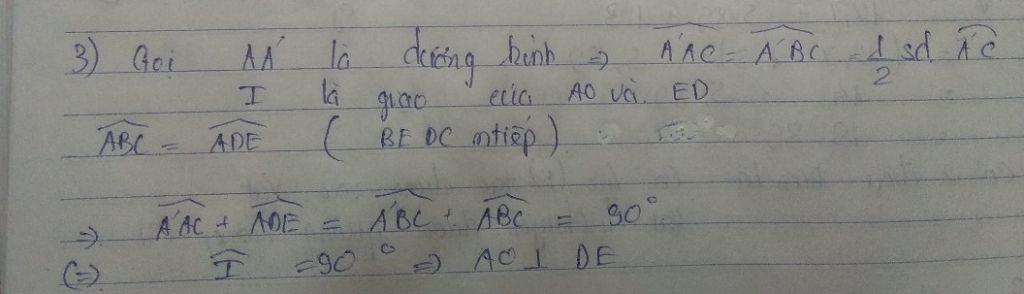 3) Gọi AA' là đường kính => A'AC = A'BC = 1/2 sđ A'C
I là giao của AO và ED
ABC = ADE ( BEDC ntiếp )
=> A'AC + ADE = A'BC + ABC = 90°
(=) I = 90° => AO ⊥ DE